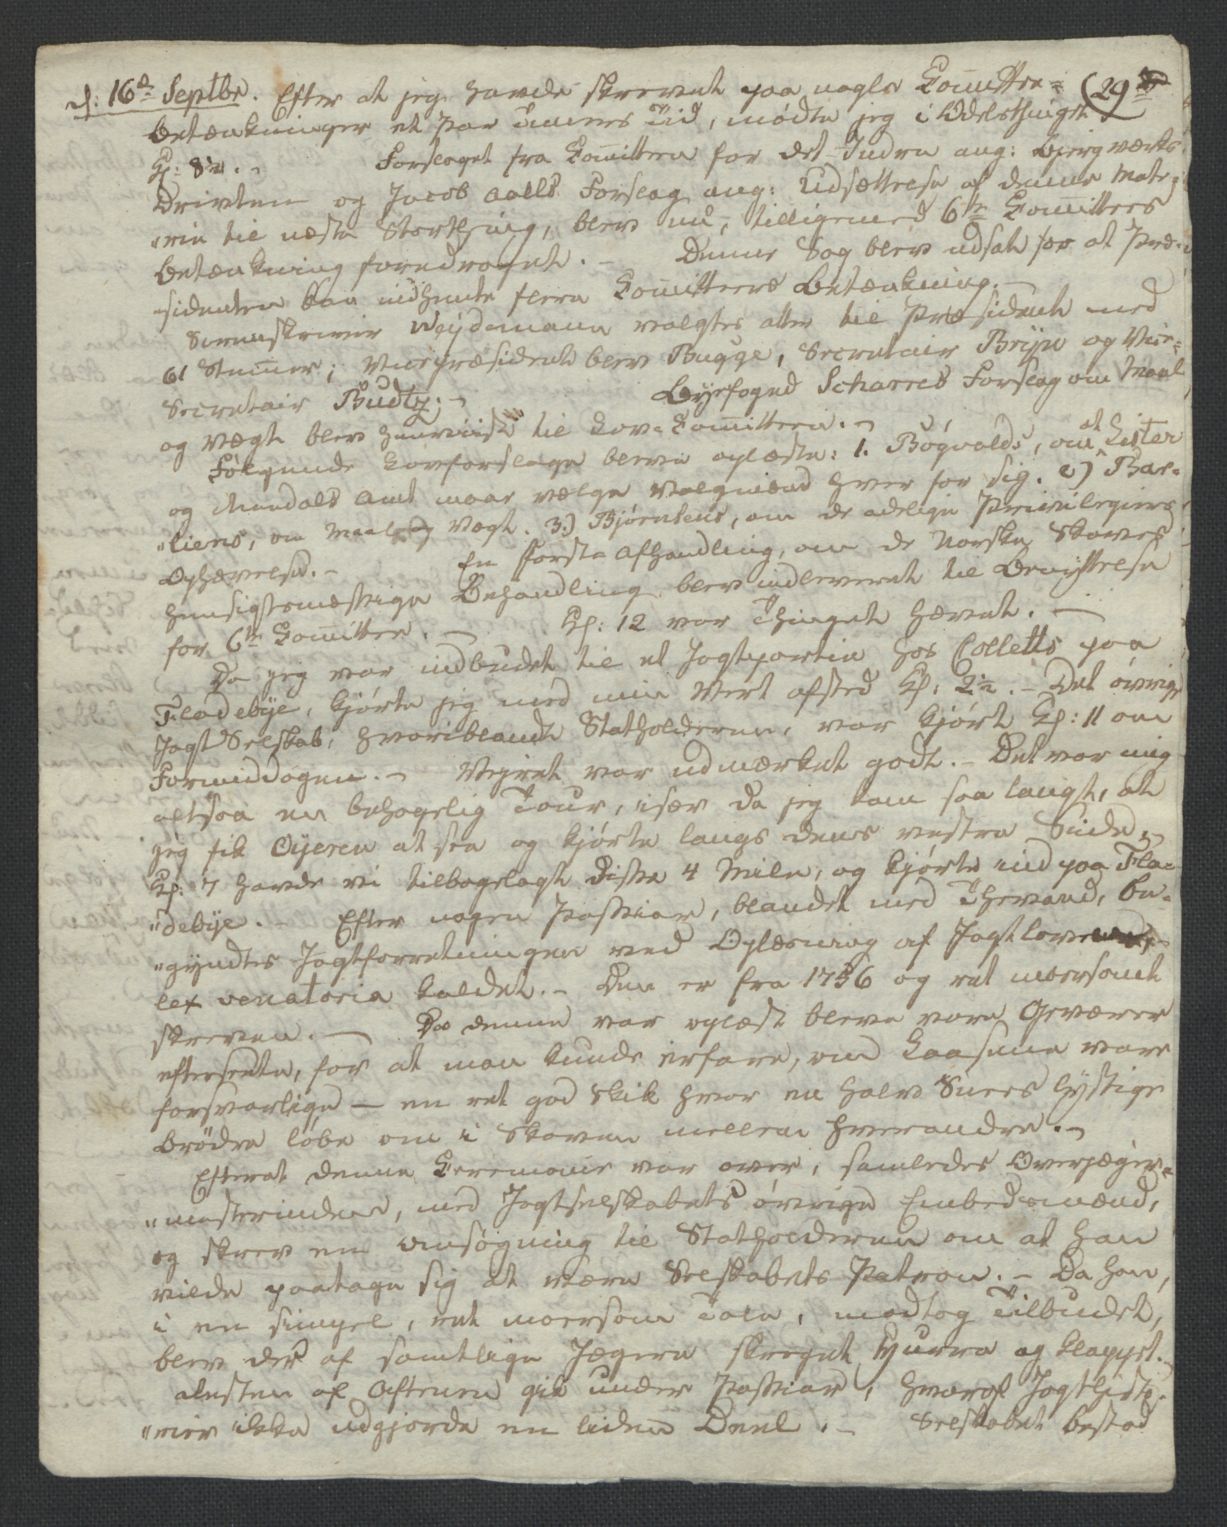 d: 16de Septbr. Efter at jeg havde skrevet paa nogle Committee= (29
Betænkninger et Par Timers Tid, mødte jeg i Odelsthinget
Kl: 8½. - Forslaget fra Committeen for det Indre ang: Bjergværks
Driften og Jacob Aalls Forslag ang: Udsættelse af denne Mate=
"rie til næste Storthing, blev nu, tilligemed 6te Committees
Betænkning foredraget. - Denne Sag blev udsat for at Præ=
"sidenten kan indhente flere Committeers Betænkning. -
Sorenskriver Weydemann valgtes atter til Præsident med
61 Stemmer; Vicepræsident blev Bugge, Secretair Bryn og Vice=
Secretair Budtz. - Byefoged Scharres Forslag om Maal
og Vægt blev henviist til Lov=Committeen. -
Følgende Lovforslage bleve oplæste: 1. Bøgvalds, om at Lister
og Mandals Amt maae vælge Valgmænd hver for sig. 2) Bar=
"liens, om Maal og Vægt. 3.) Bjørntens, om de adelige Privilegiers
Ophævelse. - En Første Afhandling, om de Norske Skoves
hensigtsmæssige Behandling blev indleveret til Benyttelse
for 6te Committee. - Kl: 12 var Thinget hævet. -
Da jeg var indbudet til et Jagtpartie hos Colletts paa
Fladebye, kjørte jeg med min Vert afsted Kl: 2½. - Det øvrige
Jagt Selskab, hvoriblandt Statholderen, var kjørt Kl: 11 om
Formiddagen. - Vejret var udmærket godt. - Det var mig
altsaa en behagelig Tour, især da jeg kom saa langt, at
jeg fik Øyeren at see og kjørte langs dens vestre Siide. -
Kl: 7 havde vi tilbagelagt disse 4 Miile, og kjørte ind paa Fla=
"debye. - Efter nogen Passiar, blandet med Thevand, be=
"gyndtes Jagtforretningen ved Oplæsning af Jagtloven, -
lex venatoria kaldet. - Den er fra 1756 og ret moersomt
skreven. - Da denne var oplæst bleve vore Geværer
efterseete, for at man kunde erfare, om Laasene vare
forsvarlige - en ret god Skik hvor en halv Snees lystige
Brødre løbe om i Skoven mellem hverandre. -
Efterat denne Ceremonie var over, samledes Overjæger=
"mesterinden, med Jagtselskabets øvrige Embedsmænd,
og skrev en Ansøgning til Statholderen om at han
vilde paatage sig at være Selskabets Patron. - Da han,
i en simpel, ret moersom Tale, modtog Tilbudet,
blev der af samtlige Jægere skreget Hurra og klappet. -
Resten af Aftenen gik under Passiar, hvoraf Jagthisto=
"rier ikke udgjorde en liden Deel. - Selskabet bestod